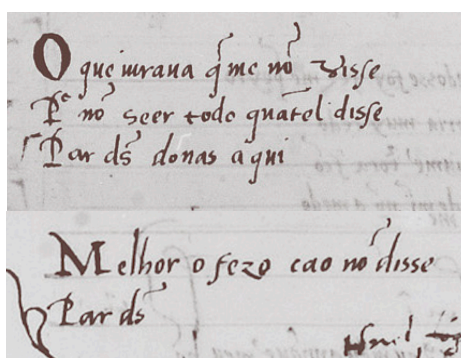 O que iuraua q̃ me nõ visse
Pᵉ nõ seer todo quãtel disse
Par ds̃ donas aqui
Melhor o fezo cao nõ disse
Par ds̃